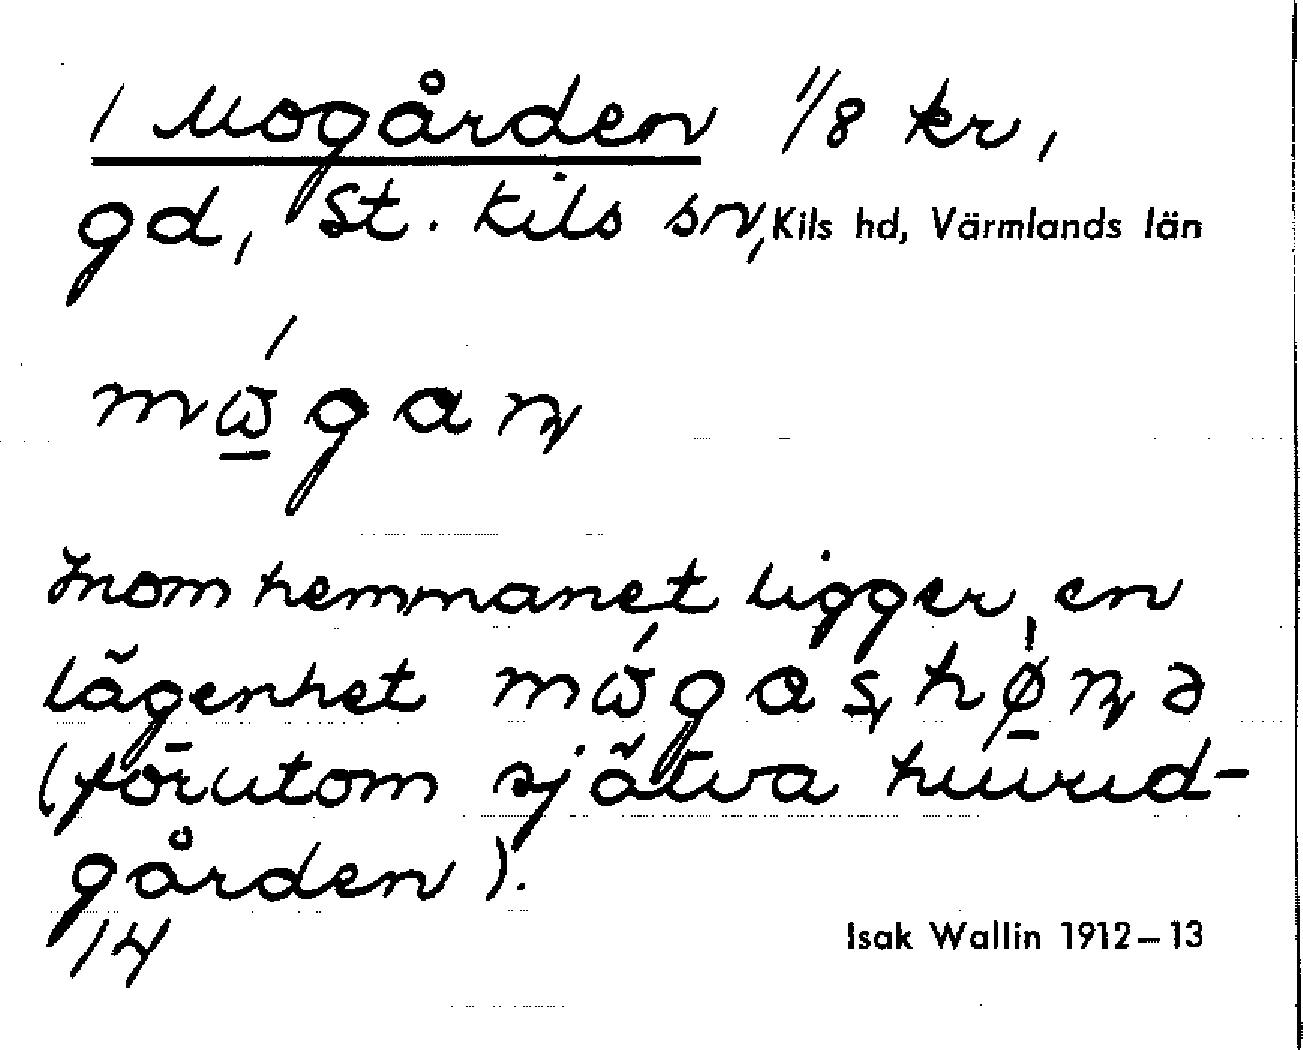 1 Mogården 1/8 kr,
gd, St. Kils sn, Kils hd, Värmlands län
mώ̲gaɳ
Inom hemmanet ligger en
lägenhet mώgaʂhǿ̲ɳə
(förutom själva huvud-
gården).
14
Isak Wallin 1912–13